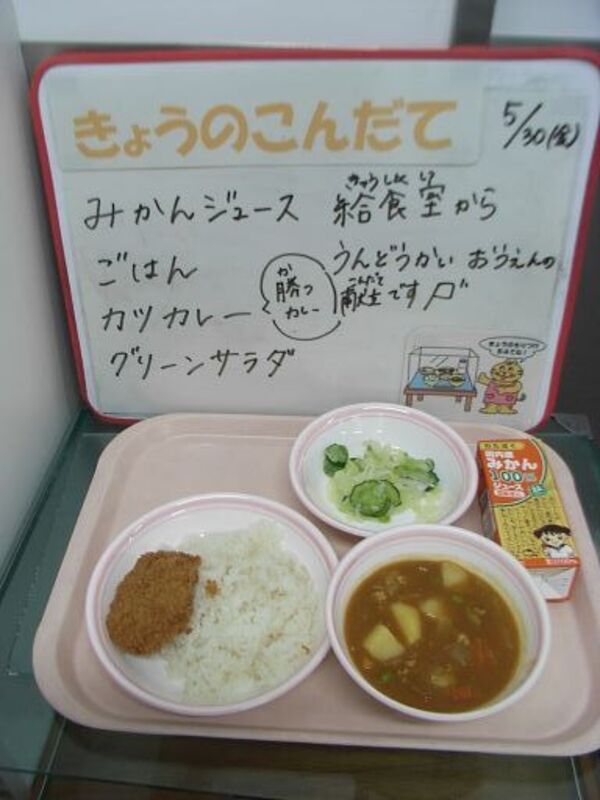 きょうのこんだて
5/30(金)
みかんジュース
ごはん
カツカレー
か
勝つ
カレー
グリーンサラダ
きゅうしょくしつ
給食室から
うんどうかい おうえんの
こんだて
献立です
きょうのもりつけ
国内産
みかん
100
ジュース